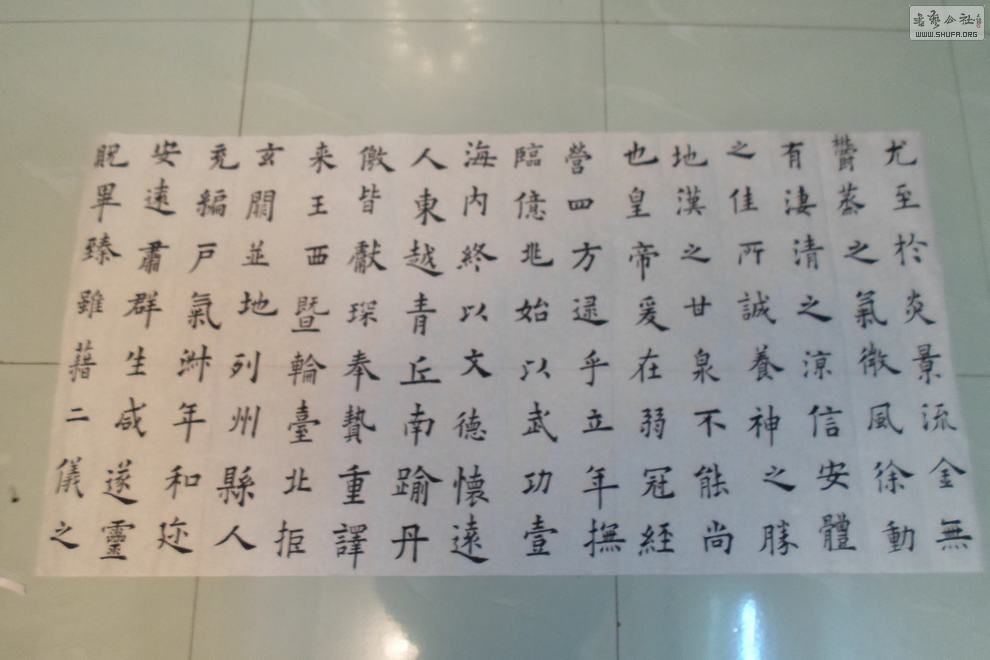 尤至於炎景流金無
欝蒸之氣微風徐動
有淒清之涼信安體
之佳所誠養神之勝
地漢之甘泉不能尚
也皇帝爰在弱冠經
營四方逮乎立年撫
臨億兆始以武功壹
海內終以文德懷遠
人東越青丘南踰丹
儌皆獻琛奉贄重譯
来王西暨輪臺北拒
玄闕並地列州縣人
充編戶氣淋年和迩
安遠肅群生咸遂靈
貺畢臻雖藉二儀之
書藝公社
WWW.SHUFA.ORG